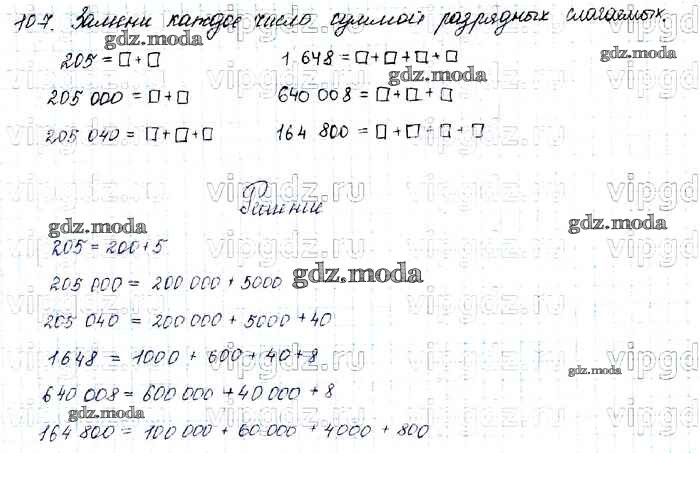 107. Замени каждое число суммой разрядных слагаемых.
gdz.moda
205 = □ + □
1 648 = □ + □ + □ + □
gdz.moda
205 000 = □ + □
640 008 = □ + □ + □
205 040 = □ + □ + □
164 800 = □ + □ + □ + □
vipgdz.ru
Решение
gdz.moda
205 = 200 + 5
205 000 = 200 000 + 5000
gdz.moda
205 040 = 200 000 + 5000 + 40
1648 = 1000 + 600 + 40 + 8
gdz.moda
640 008 = 600 000 + 40 000 + 8
gdz.moda
164 800 = 100 000 + 60 000 + 4000 + 800